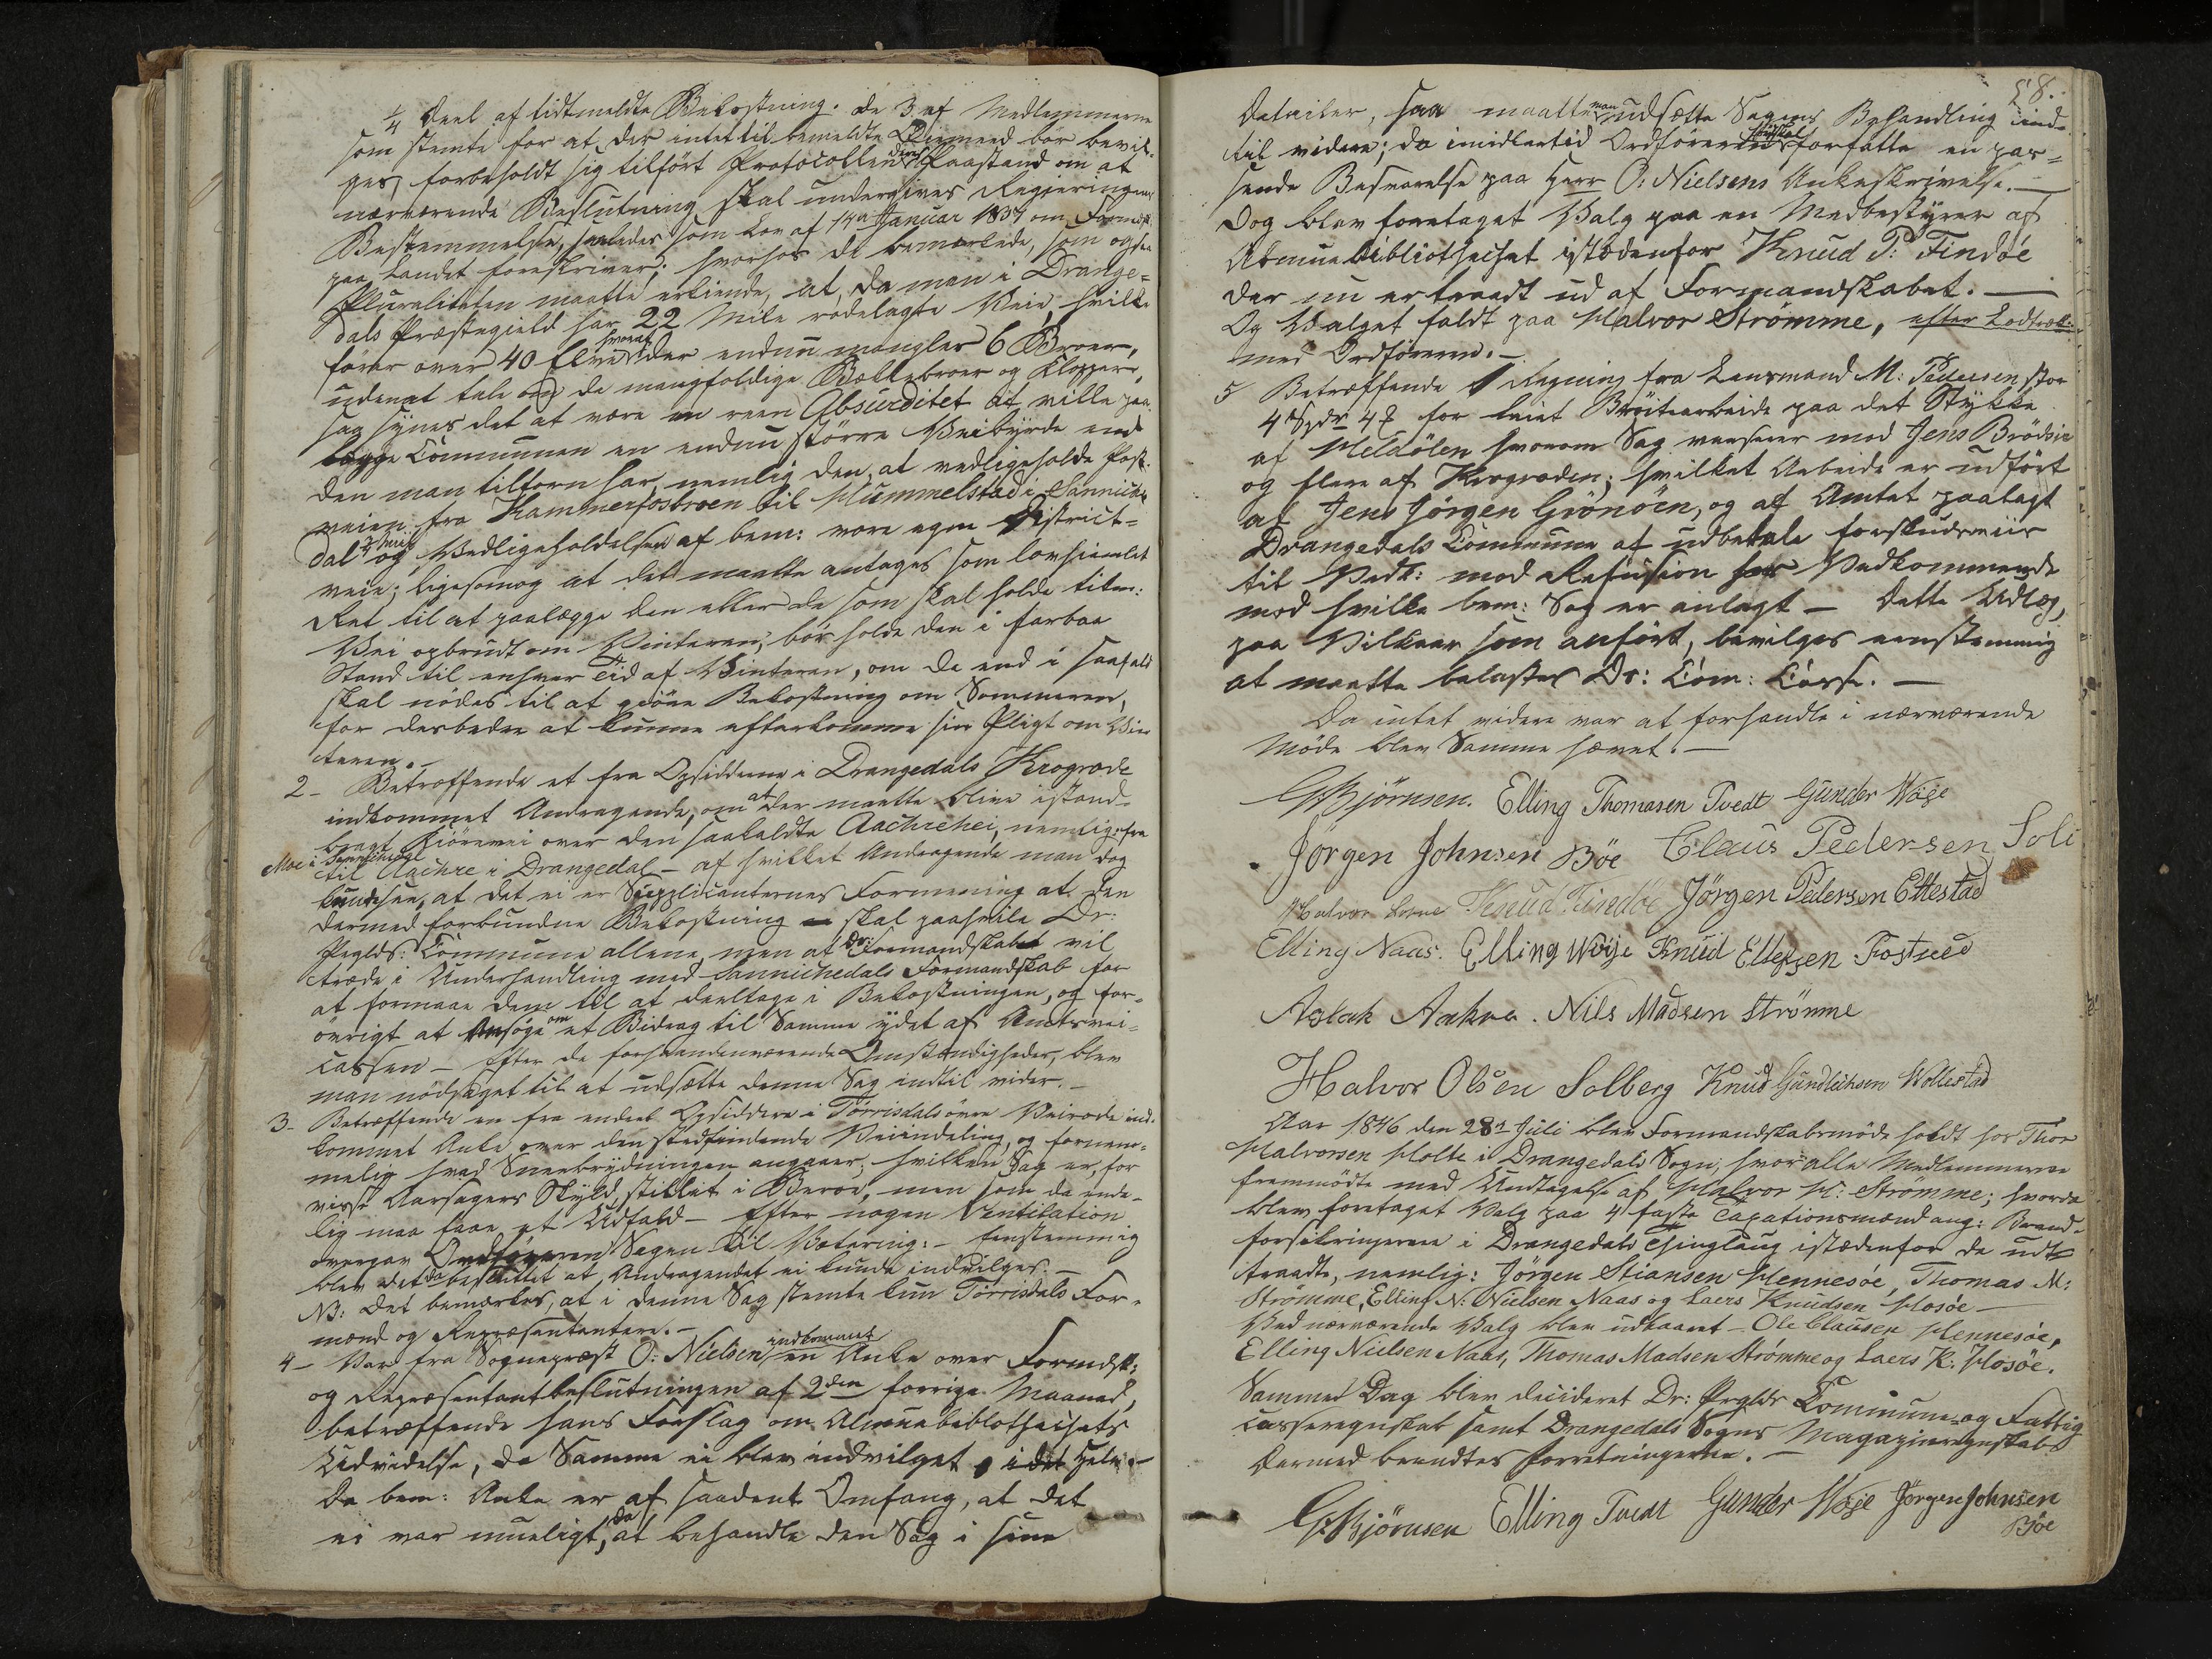 1/4 Deel af tidtmeldte Bekostning. De 3 af Medlemmerne
som stemte for at der intet til bemeldte Øiemeed bør bevil-
ges, forbeholdt sig tilført Protocollen deres Paastand om at
nærværende Beslutning skal undergives Regjeringens
Bestemmelse, saaledes som Lov af 14de Januar 1837 om Formdsk.
paa Landet foreskriver; hvorhos de bemærkede, som ogsaa
Pluraliteten maatte erkiende, at, da man i Drange-
dals Præstegield har 22 Mile rodelagte Veie, hvilke
fører over 40 Elve hvoraf der endnu mangler 6 Broer,
uden at tale om de mangfoldige Bækkebroer og Klopper,
saa synes det at være en reen Absurditet at ville paa-
lægge Communen en endnu større Veibyrde end
den man tilforn har, nemlig den, at vedligeholde Post-
veien fra Kammerfosbroen til Hummelstad i Sannike-
dal og Vedligeholdelsen af bem: vore egne District-
veie; ligesom og at det maatte antages som lovhiemlet
Ret til at paalægge den eller de som skal holde titm:
Vei opbrudt om Vinteren, bør holde den i farbar
Stand til enhver Tid af Vinteren, om de end i saafald
skal nødes til at giøre Bekostning om Sommeren,
for desbedre at kunne efterkomme sin Pligt om Vin-
teren.-
2- Betræffende et fra Opsidderne i Drangedals Krogrode
indkommet Andragende, om at der maatte blive istand-
bragt Kiørevei over den saakaldte Aachrehei, nemlig: fra
Moe i Sannichedal
til Aachre i Drangedal - af hvilket Andragende man dog
kunde see, at det ei er Supplicanternes Formening at den
dermed forbundne Bekostning skal paahvile Dr:
Prglds: Commune allene, men at Dr: Formandskabet vil
træde i Underhandling med Sannichedals Formandskab for
at formaae dem til at deeltage i Bekostningen, og for-
øvrigt at Ansøge om et Bidrag til Samme ydet af Amtsvei-
cassen - Efter de forhaandenværende Omstændigheder, blev
man nødsaget til at udsætte denne Sag indtil vider.-
3- Betræffende en fra endeel Opsiddere i Tørrisdals øvre Veirode ind-
kommet Anke over den stedfindende Veiindeling, og fornem-
melig hvad Sneebrydningen angaaer; hvilken Sag er, for
visse Aarsagers Skyld, stillet i Beroe, men som da ende-
lig maa faae et Udfald - Efter nogen Ventilation
overgav Ordføreren Sagen til Votering: - Eenstemmig
blev det da besluttet at Andragendet ei kunde indvilges.-
NB: Det bemærkes, at i denne Sag stemte kun Tørrisdals For-
mænd og Repræsentantere.-
4- Var fra Sognepræst O: Nielsen indkommet en Anke over Formdsk:
og Repræsentantbeslutningen af 2den forrige Maaned,
betræffende hans Forslag om Almuebibliothechets
Udvidelse, da Samme ei blev indvilget i det Hele.-
Da bem: Anke er af saadant Omfang, at det
ei var mueligt, da at behandle den Sag i sine
58.
Detailer, saa maatte man udsætte Sagens Behandling ind-
til videre; da imidlertid Ordføreren skal forfatte en pas-
sende Besvarelse paa Herr O: Nielsens Ankeskrivelse.-
Dog blev foretaget Valg paa en Medbestyrer af
Almuebibliothechet istædenfor Knud P: Findöe
der nu er traadt ud af Formandskabet.-
Og Valget faldt paa Halvor Strømme, efter Lodtræk:
med Ordføreren.-
5 Betræffende 1 Regning fra Lensmand M: Pedersen stor
4 Spdr 4 for leiet Brøitearbeide paa det Stykke
af Heldölen hvorom Sag verserer mod Jens Brödsie
og flere af Krogroden; hvilket Arbeide er udført
af Jens Jörgen Grönöen, og af Amtet paalagt
Drangedals Commune at udbetale forskudsviis
til Vedk: mod Refusion hos Vedkommende
mod hvilke bem: Sag er anlagt - Dette Udlæg,
paa Vilkaar som anført, bevilges eenstemmig
at maatte belastes Dr: Com: Casse.-
Da intet videre var at forhandle i nærværende
Møde blev Samme hævet.-
G. Bjørnsen. Elling Thomasen Tvedt Gunder Wøje
Jörgen Johnsen Böe Claus Pedersen Soli
Halvor Knud Findöe Jörgen Pedersen Ettestad
Elling Naas. Elling Wöje Knud Ellefsen Fostvedt
Aslak Aakre. Nils Madsen Strömme
Halvor Olsen Solberg Knud Gundleiksen Wollestad
Aar 1846 den 28de Juli blev Formandskabsmøde holdt hos Thor
Halvorsen Holte i Drangedals Sogn, hvor alle Medlemmerne
fremmødte med Undtagelse af Halvor H: Strömme; hvorda
blev foretaget Valg paa 4 faste Taxationsmænd ang: Brand-
forsikringerne i Drangedals Thinglaug istædenfor de udt
traadte, nemlig: Jörgen Stiansen Hennesöe, Thomas M:
Strömme, Elling N: Nielsen Naas og Laers Knudsen Hosöe -
Ved nærværende Valg blev udkaaret - Ole Clausen Hennesöe,
Elling Nielsen Naas, Thomas Madsen Strömme og Laers K: Hosöe.
Sammed Dag blev decideret Dr: Prglds Commune- og Fattig
casseregnskab samt Drangedals Sogns Magazinregnskab
dermed beendtes Forretningerne.-
G. Bjørnsen Elling Tvedt Gunder Wøje Jörgen Johnsen
Böe